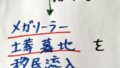 メガソーラー
土葬墓地 を
移民流入